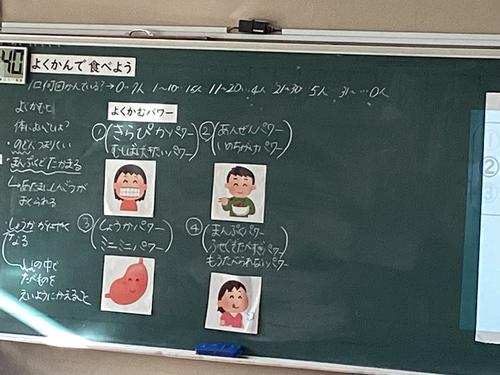 40
よくかんで食べよう
1口何回かんでいる?→0…7人 1〜10…15人 11〜20…4人 21〜30 5人 31〜…0人
よくかむと
体によいことは?
・のどにつまりにくい
まんぷくどたかまる
おくられる
しょうかがはやく
なる
いの中で
たべものを
えいようにかえること
よくかむパワー
① きらぴかパワー
むしばげきたいパワー
② あんぜんパワー
いのちがけパワー
③ しょうかパワー
ミニミニパワー
④ まんぷくパワー
ふせぐたべすぎパワー
もうたべられないパワー
②
③